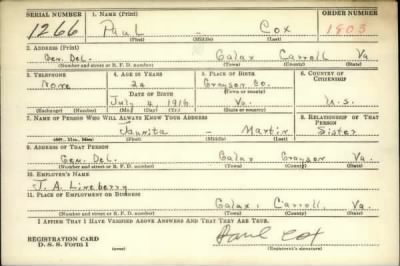 SERIAL NUMBER 1. NAME (Print) ORDER NUMBER
1266 Paul - Cox 1903
(First) (Middle) (Last)
2. ADDRESS (Print)
Gen. Del. Galax Carroll Va.
(Number and street or R. F. D. number) (Town) (County) (State)
3. TELEPHONE 4. AGE IN YEARS 5. PLACE OF BIRTH 6. COUNTRY OF CITIZENSHIP
None 24 Grayson Co.
(Town or county)
DATE OF BIRTH
July 4 1916 Va. U.S.
(Exchange) (Number) (Mo.) (Day) (Yr.) (State or country)
7. NAME OF PERSON WHO WILL ALWAYS KNOW YOUR ADDRESS 8. RELATIONSHIP OF THAT PERSON
Juanita - Martin Sister
(Mr., Mrs., Miss) (First) (Middle) (Last)
9. ADDRESS OF THAT PERSON
Gen. Del. Galax Grayson Va.
(Number and street or R. F. D. number) (Town) (County) (State)
10. EMPLOYER'S NAME
J. A. Lineberry
11. PLACE OF EMPLOYMENT OR BUSINESS
Galax, Carroll, Va.
(Number and street or R. F. D. number) (Town) (County) (State)
I AFFIRM THAT I HAVE VERIFIED ABOVE ANSWERS AND THAT THEY ARE TRUE.
REGISTRATION CARD
D. S. S. Form 1 (over) Paul Cox
(Registrant's signature)